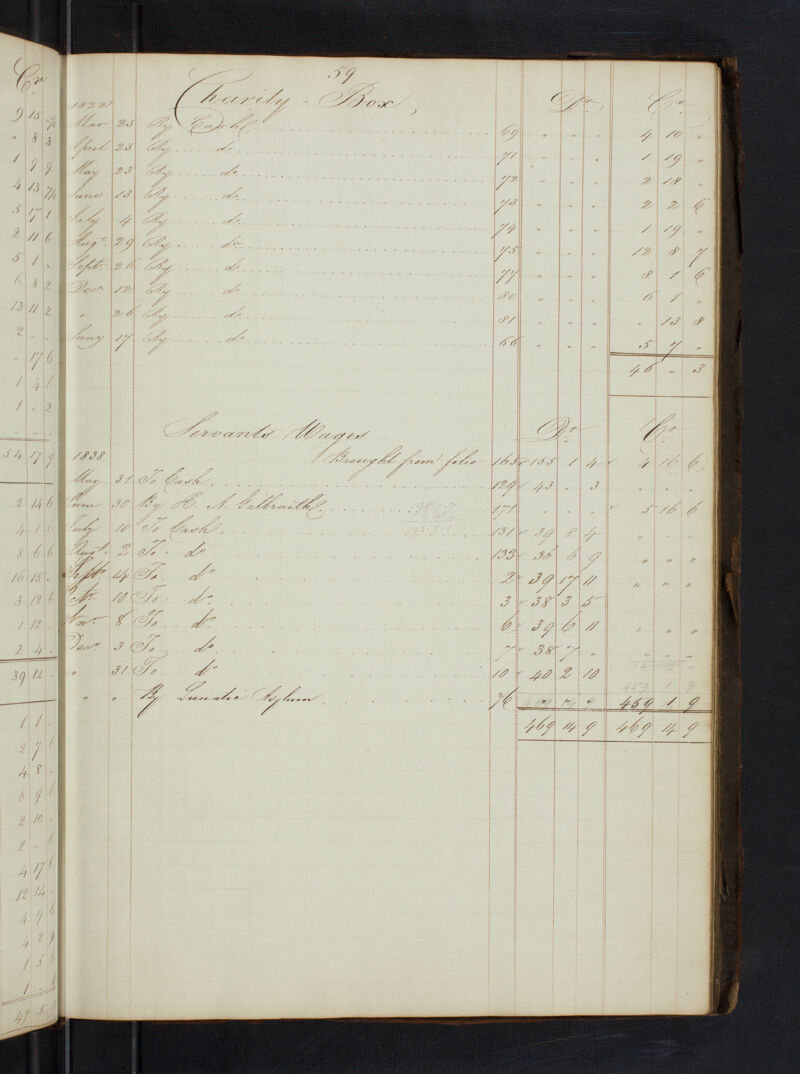 Cr
9 15 7½
" 8 3
1 9 9
4 13 7½
5 17 1
2 11 6
5 1 .
6 8 2
13 11 2
2 - -
. 17 6
1 4 6
1 - 2
54 17 9
2 14 6
4 1 6
8 6 6
16 15 .
3 19 6
1 12 .
2 4 .
39 12 .
1 1 .
2 7 6
4 8 .
6 9 6
2 10 .
2 . 6
4 17 6
12 14 .
4 9 6
4 2 9
1 5 6
47 5
59
Charity - Box, Dr. Cr.
1822
Mar 25 By Cash 69 " " " 4 10 "
April 25 By do 71 " " " 1 19 "
May 23 By do 72 " " " 2 18 "
June 13 By do 73 " " " 2 2 6
July 4 By do 74 " " " 1 19 "
Augt. 29 By do 75 " " " 12 8 7
Sept. 26 By do 77 " " " 8 1 6
Decr. 12 By do 80 " " " 6 1 "
" 26 By do 81 " " " " 13 8
Jany 17 By do 66 " " " 5 7 "
46 " 3
Servants Wages Dr. Cr.
1838 Brought from folio 165 155 1 4 4 16 6
May 31 To Cash 129 43 . 3 . . .
June 30 By H. A. Galbraith 171 . . . 5 16 6
July 10 To Cash 131 39 8 4 " " "
Augt. 2 To do 133 36 6 9 " " "
Septr. 14 To do 2 39 17 11 " " "
Octr. 10 To do 3 38 3 5
Novr. 8 To do 6 39 6 11 " " "
Decr. 3 To do 7 38 7 " " " "
" 31 To do 10 40 2 10
459 1 9
" " By Lunatic Asylum 76 459 1 9
469 14 9 469 14 9